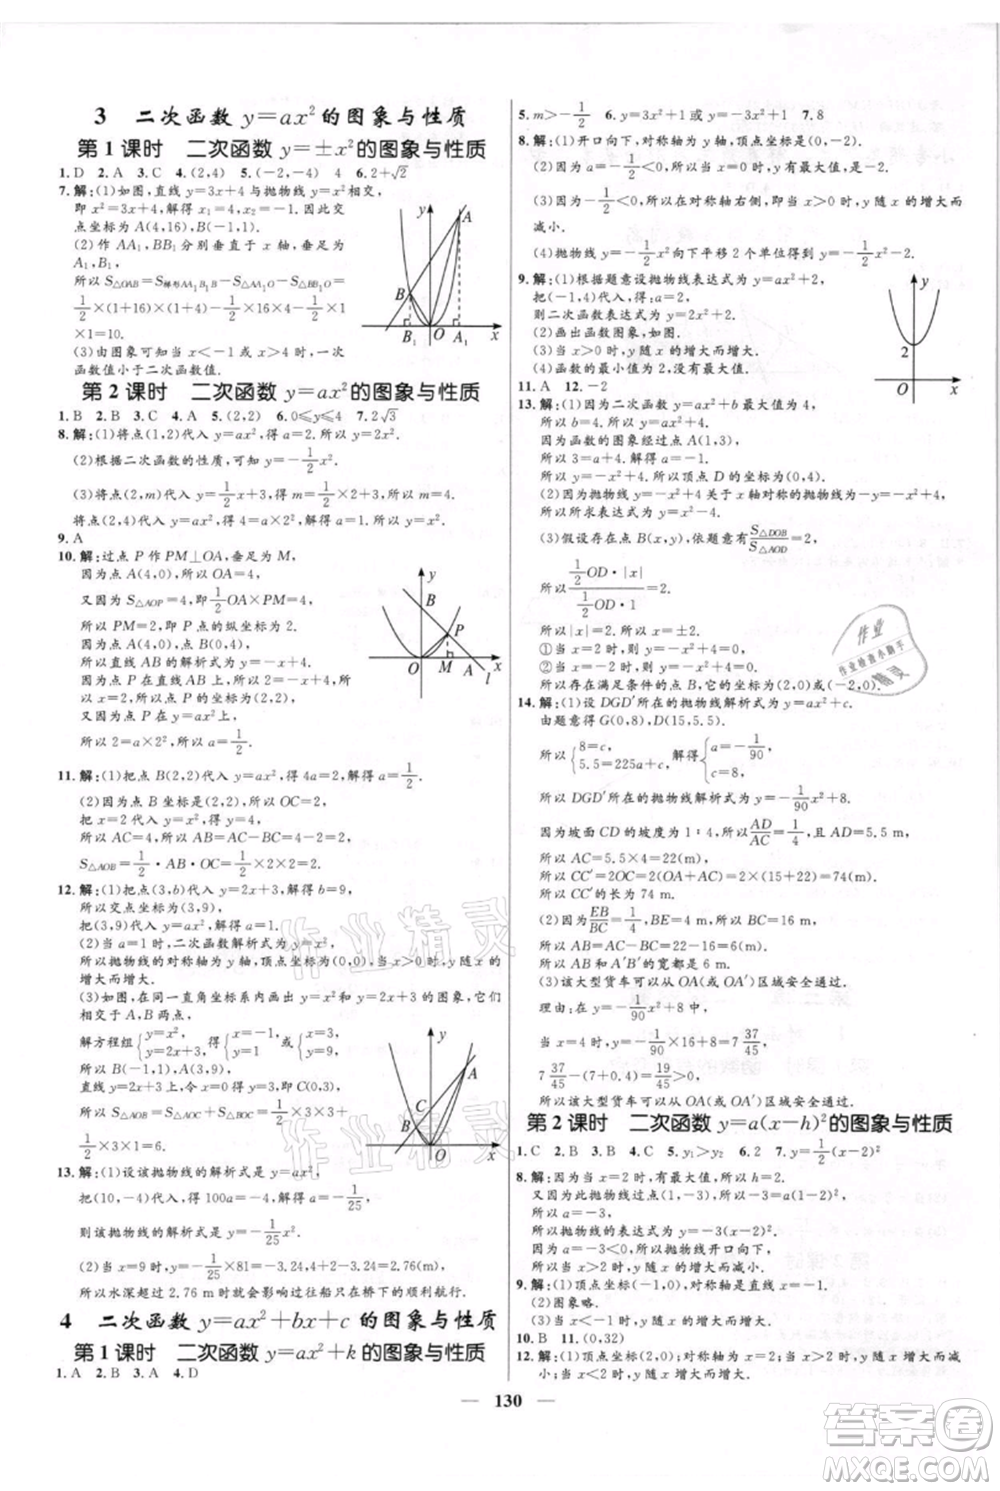 3 二次函数 y=ax²的图象与性质
第1课时 二次函数 y=±x²的图象与性质
1.D 2.A 3.C 4.(2,4) 5.(-2,-4) 4 6.2+√2
7.解:(1)如图,直线 y=3x+4 与抛物线 y=x²相交,
即 x²=3x+4,解得 x₁=4,x₂=-1.因此交
点坐标为 A(4,16),B(-1,1).
(2)作 AA₁,BB₁分别垂直于 x 轴,垂足为
A₁,B₁.
所以 S△OAB=S梯形AA₁B₁B-S△AA₁O-S△BB₁O=
1/2×(1+16)×(1+4)-1/2×4×16-1/2×1
×1=10.
(3)由图象可知当 x<-1 或 x>4 时,一次
函数值小于二次函数值.
y A B B₁ O A₁ x
第2课时 二次函数 y=ax²的图象与性质
1.B 2.B 3.C 4.A 5.(2,2) 6.0≤y≤4 7.2√3
8.解:(1)将点(1,2)代入 y=ax²,得 a=2.所以 y=2x².
(2)根据二次函数的性质,可知 y=-1/2x².
(3)将点(2,m)代入 y=1/2x+3,得 m=1/2×2+3,所以 m=4.
将点(2,4)代入 y=ax²,得 4=a×2²,所以 a=1.所以 y=x².
9.A
10.解:过点 P 作 PM⊥OA,垂足为 M,
因为点 A(4,0),所以 OA=4,
又因为 S△AOP=4,即 1/2OA×PM=4,
所以 PM=2.
因为点 P 的纵坐标为 2.
因为 A(4,0),B(0,4),
所以直线 AB 的解析式为 y=-x+4,
所以可求得 x=2.
又因为点 P 在 y=ax²的图象上,
所以 2=a×2²,所以 a=1/2.
y B P O M A l x
11.解:(1)把点 B(2,2)代入 y=ax²,得 4a=2.所以 a=1/2.
(2)因为点 B 的坐标为(2,2),所以 OC=2.
把 x=2 代入 y=x²,得 y=4.
所以 AC=4,所以 AB=AC-BC=4-2=2.
S△AOB=1/2·AB·OC=1/2×2×2=2.
12.解:(1)把点(3,b)代入 y=2x+3,解得 b=9,
所以交点坐标为(3,9),
把(3,9)代入 y=ax²,解得 a=1.
(2)当 a=1 时,二次函数解析式为 y=x²,
抛物线的对称轴为 y 轴,顶点坐标为(0,0),当 x<0 时,y 随 x 的
增大而减小,当 x>0 时,y 随 x 的增大而增大.
(3)如图,在同一直角坐标系内画出一次函数与二次函数的图象,它们
相交于 A,B 两点,
解方程组{y=x², y=2x+3,得{x=3, y=9或{x=-1, y=1,
所以 B(-1,1),A(3,9).
直线 y=2x+3 与 y 轴的交点为 C(0,3),
所以 S△AOB=S△AOC+S△BOC=1/2×3×3+
1/2×3×1=6.
y A C B O x
13.解:(1)设该抛物线的解析式是 y=ax²,
结合图象,把(10,-4)代入,得 100a=-4,解得 a=-1/25,
则该抛物线的解析式是 y=-1/25x².
(2)当 x=9 时,则有 y=-1/25×81=-3.24,4+2-3.24=2.76,
所以水深超过 2.76 m 时就会影响过往船只在桥下的顺利航行.
4 二次函数 y=ax²+bx+c 的图象与性质
第1课时 二次函数 y=ax²+k 的图象与性质
1.A 2.D 3.A 4.D
5.m>-1/2 6.y=3x²+1 或 y=-3x²+1 7.8
8.解:(1)开口向下,对称轴为 y 轴,顶点坐标为(0,-2).
(2)因为 a=-1/2<0,所以 y 有最大值,当 x=0 时,y 最大值为
-2.
(3)因为-1/2<0,所以在对称轴右侧,即当 x>0 时,y 随 x 的增大而
减小.
(4)抛物线 y=-1/2x²向下平移 2 个单位得到 y=-1/2x²-2.
9.解:(1)根据题意设抛物线表达式为 y=ax²+2,
把(-1,4)代入,得 a+2=4,解得 a=2,
则二次函数表达式为 y=2x²+2.
(2)画出函数图象,如图.
(3)当 x>0 时,y 随 x 的增大而增大.
(4)函数的最小值为 2,无最大值.
y 2 O x
11.A 12.-2
13.解:(1)因为二次函数 y=ax²+b 最大值为 4,
所以 b=4.所以 y=ax²+4.
因为函数的图象经过点 A(1,3),
所以 3=a+4.
所以 a=-1.所以 y=-x²+4,顶点 D 的坐标为(0,4).
(2)因为抛物线 y=-x²+4 关于 x 轴对称的抛物线为 y=x²-4,
所以所求表达式为 y=x²-4.
(3)假设存在点 B(x,y),依题意有 S△DOB/S△AOD=2,
所以 (1/2OD·|x|)/(1/2OD·1)=2.
所以|x|=2,所以 x=±2.
①当 x=2 时,y=-x²+4=0;
②当 x=-2 时,y=-x²+4=0.
所以存在满足条件的点 B,坐标为(2,0)或(-2,0).
14.解:(1)设 DGD′所在的抛物线解析式为 y=ax²+c.
由题意得 G(0,8),D(15,5.5).
所以{8=c, 5.5=225a+c.解得{a=-1/90, c=8,
所以 DGD′所在的抛物线解析式为 y=-1/90x²+8.
因为坡面 CD 的坡度为 1∶4,所以 AD/AC=1/4,且 AD=5.5,
所以 AC=5.5×4=22(m),
所以 CC′=2OC=2×(OA+AC)=2×(15+22)=74(m),
所以 CC′的长为 74 m.
(2)因为 EB/BC=1/4,BE=4 m,所以 BC=16 m,
所以 AB=AC-BC=22-16=6(m),
所以 AB 和 A′B′的宽都为 6 m.
(3)该大型货车可以从 OA(或 OA′)区域安全通过.
理由:在 y=-1/90x²+8 中,
当 x=4 时,y=-1/90×16+8=7 37/45.
7 37/45-(7+0.4)=19/45>0,
所以该大型货车可以从 OA(或 OA′)区域安全通过.
第2课时 二次函数 y=a(x-h)²的图象与性质
1.C 2.B 3.B 4.C 5.y₁>y₂ 6.2 7.y=1/2(x-2)²
8.解:(1)因为当 x=2 时,有最大值,所以 h=2.
又因为此抛物线过点(1,-3),所以-3=a(1-2)²,
所以 a=-3.所以抛物线的表达式为 y=-3(x-2)².
(2)因为 a=-3<0,所以抛物线开口向下,
所以当 x>2 时,y 随 x 的增大而减小.
9.解:(1)顶点坐标(-1,0),对称轴:直线 x=-1.
(2)图象略.
(3)当 x>-1 时,y 随 x 的增大而增大.
10.B 11.(0,32)
12.解:(1)顶点坐标(2,0),对称轴:直线 x=2.
130
作业精灵
作业精灵
作业
作业检查小助手
精灵
答案圈
MXQE.COM